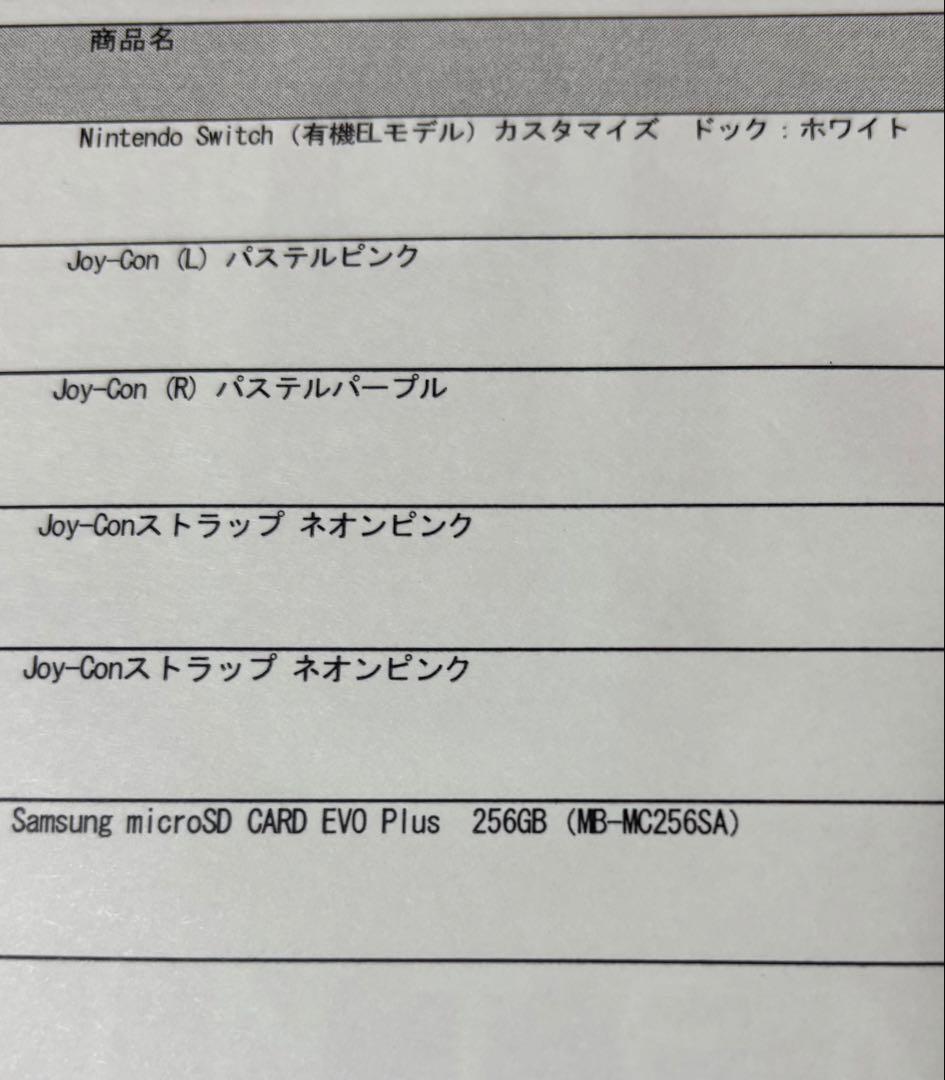 商品名
Nintendo Switch (有機ELモデル) カスタマイズ　ドック：ホワイト
Joy-Con (L) パステルピンク
Joy-Con (R) パステルパープル
Joy-Conストラップ ネオンピンク
Joy-Conストラップ ネオンピンク
Samsung microSD CARD EVO Plus　256GB (MB-MC256SA)